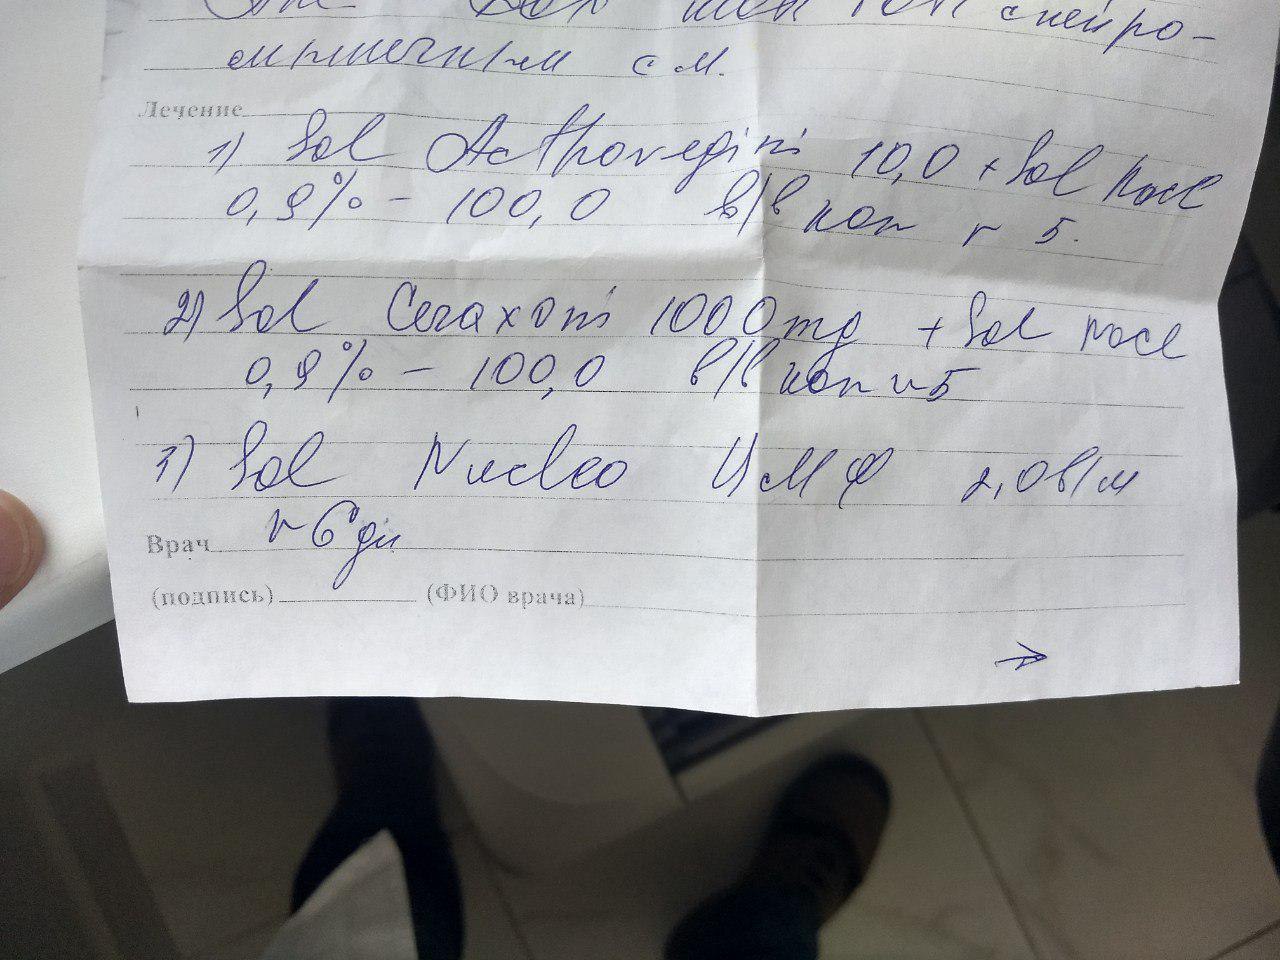 с нейро-
мышечным см.
Лечение
1) Sol Acthovegini 10,0 + Sol NaCl
0,9% - 100,0 в/в кап n 5.
2) Sol Ceraxoni 1000mg + Sol NaCl
0,9% - 100,0 в/в кап n 5
3) Sol Nucleo ЦМФ 2,0 в/м
Врач n 6 дн
(подпись) (ФИО врача)
→